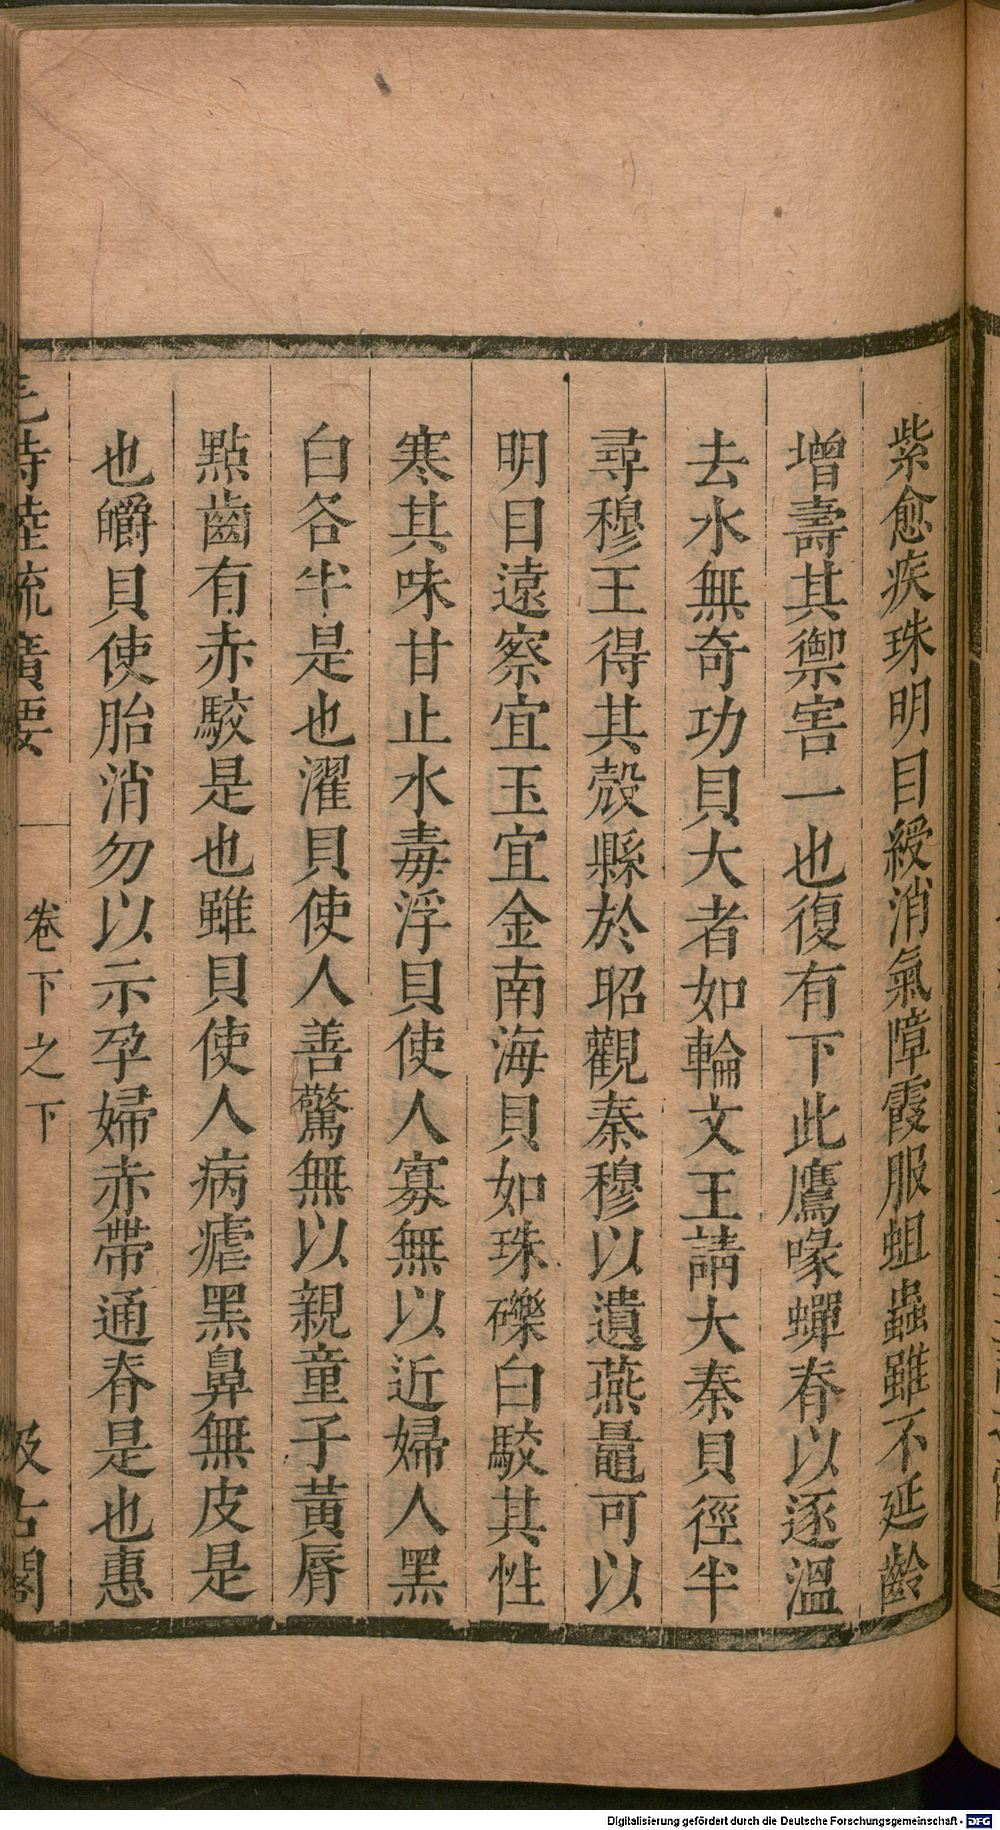 紫愈疾珠明目綬消氣障霞服蛆蟲雖不延齡
增壽其禦害一也復有下此鷹喙蟬脊以逐溫
去水無奇功貝大者如輪文王請大秦貝徑半
尋穆王得其殼縣於昭觀秦穆以遺燕鼂可以
明目遠察宜玉宜金南海貝如珠礫白駮其性
寒其味甘止水毒浮貝使人寡無以近婦人黑
白各半是也濯貝使人善驚無以親童子黃脣
點齒有赤駮是也雖貝使人病瘧黑鼻無皮是
也皭貝使胎消勿以示孕婦赤帶通脊是也惠
毛詩陸疏廣要
卷下之下
汲古閣
Digitalisierung gefördert durch die Deutsche Forschungsgemeinschaft - DFG